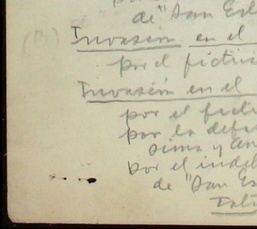 de "San Es
(B) Invasión en el
por el fictici
Invasión en el
por el fict
por la defa
sima y an
por el indel
de "San Es